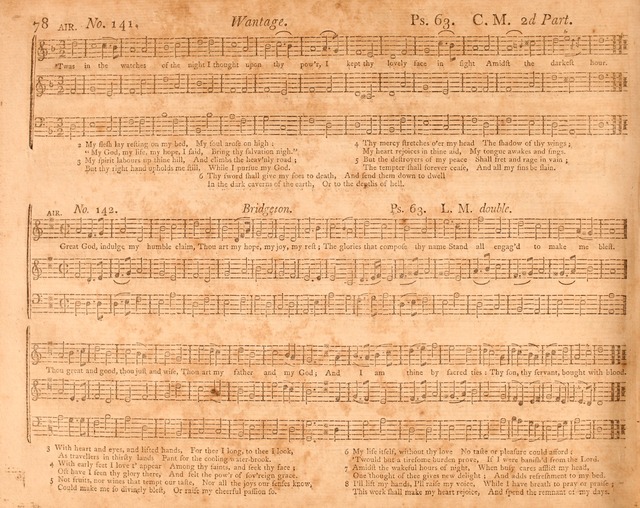 78 AIR. No. 141. Wantage. Ps. 63. C. M. 2d Part.
'Twas in the watches of the night I thought upon thy pow'r, I kept thy lovely face in sight Amidst the darkest hour.
2 My flesh lay resting on my bed, My soul arose on high:
"My God, my life, my hope, I said, Bring thy salvation nigh."
3 My spirit labours up thine hill, And climbs the heav'nly road;
But thy right hand upholds me still, While I pursue my God.
4 Thy mercy stretches o'er my head The shadow of thy wings;
My heart rejoices in thine aid, My tongue awakes and sings.
5 But the destroyers of my peace Shall fret and rage in vain;
The tempter shall forever cease, And all my sins be slain.
6 Thy sword shall give my foes to death, And send them down to dwell
In the dark caverns of the earth, Or to the depths of hell.
AIR. No. 142. Bridgeton. Ps. 63. L. M. double.
Great God, indulge my humble claim, Thou art my hope, my joy, my rest; The glories that compose thy name Stand all engag'd to make me blest.
Thou great and good, thou just and wise, Thou art my father and my God; And I am thine by sacred ties: Thy son, thy servant, bought with blood.
3 With heart and eyes, and lifted hands, For thee I long, to thee I look,
As travellers in thirsty lands Pant for the cooling water-brook.
4 With early feet I love t' appear Among thy saints, and seek thy face;
Oft have I seen thy glory there, And felt the pow'r of sov'reign grace.
5 Not fruits, nor wines that tempt our taste, Nor all the joys our senses know,
Could make me so divinely blest, Or raise my cheerful passion so.
6 My life itself, without thy love No taste or pleasure could afford;
'Twould but a tiresome burden prove, If I were banish'd from the Lord.
7 Amidst the wakeful hours of night, When busy cares afflict my head,
One thought of thee gives new delight, And adds refreshment to my bed.
8 I'll lift my hands, I'll raise my voice, While I have breath to pray or praise;
This work shall make my heart rejoice, And spend the remnant of my days.